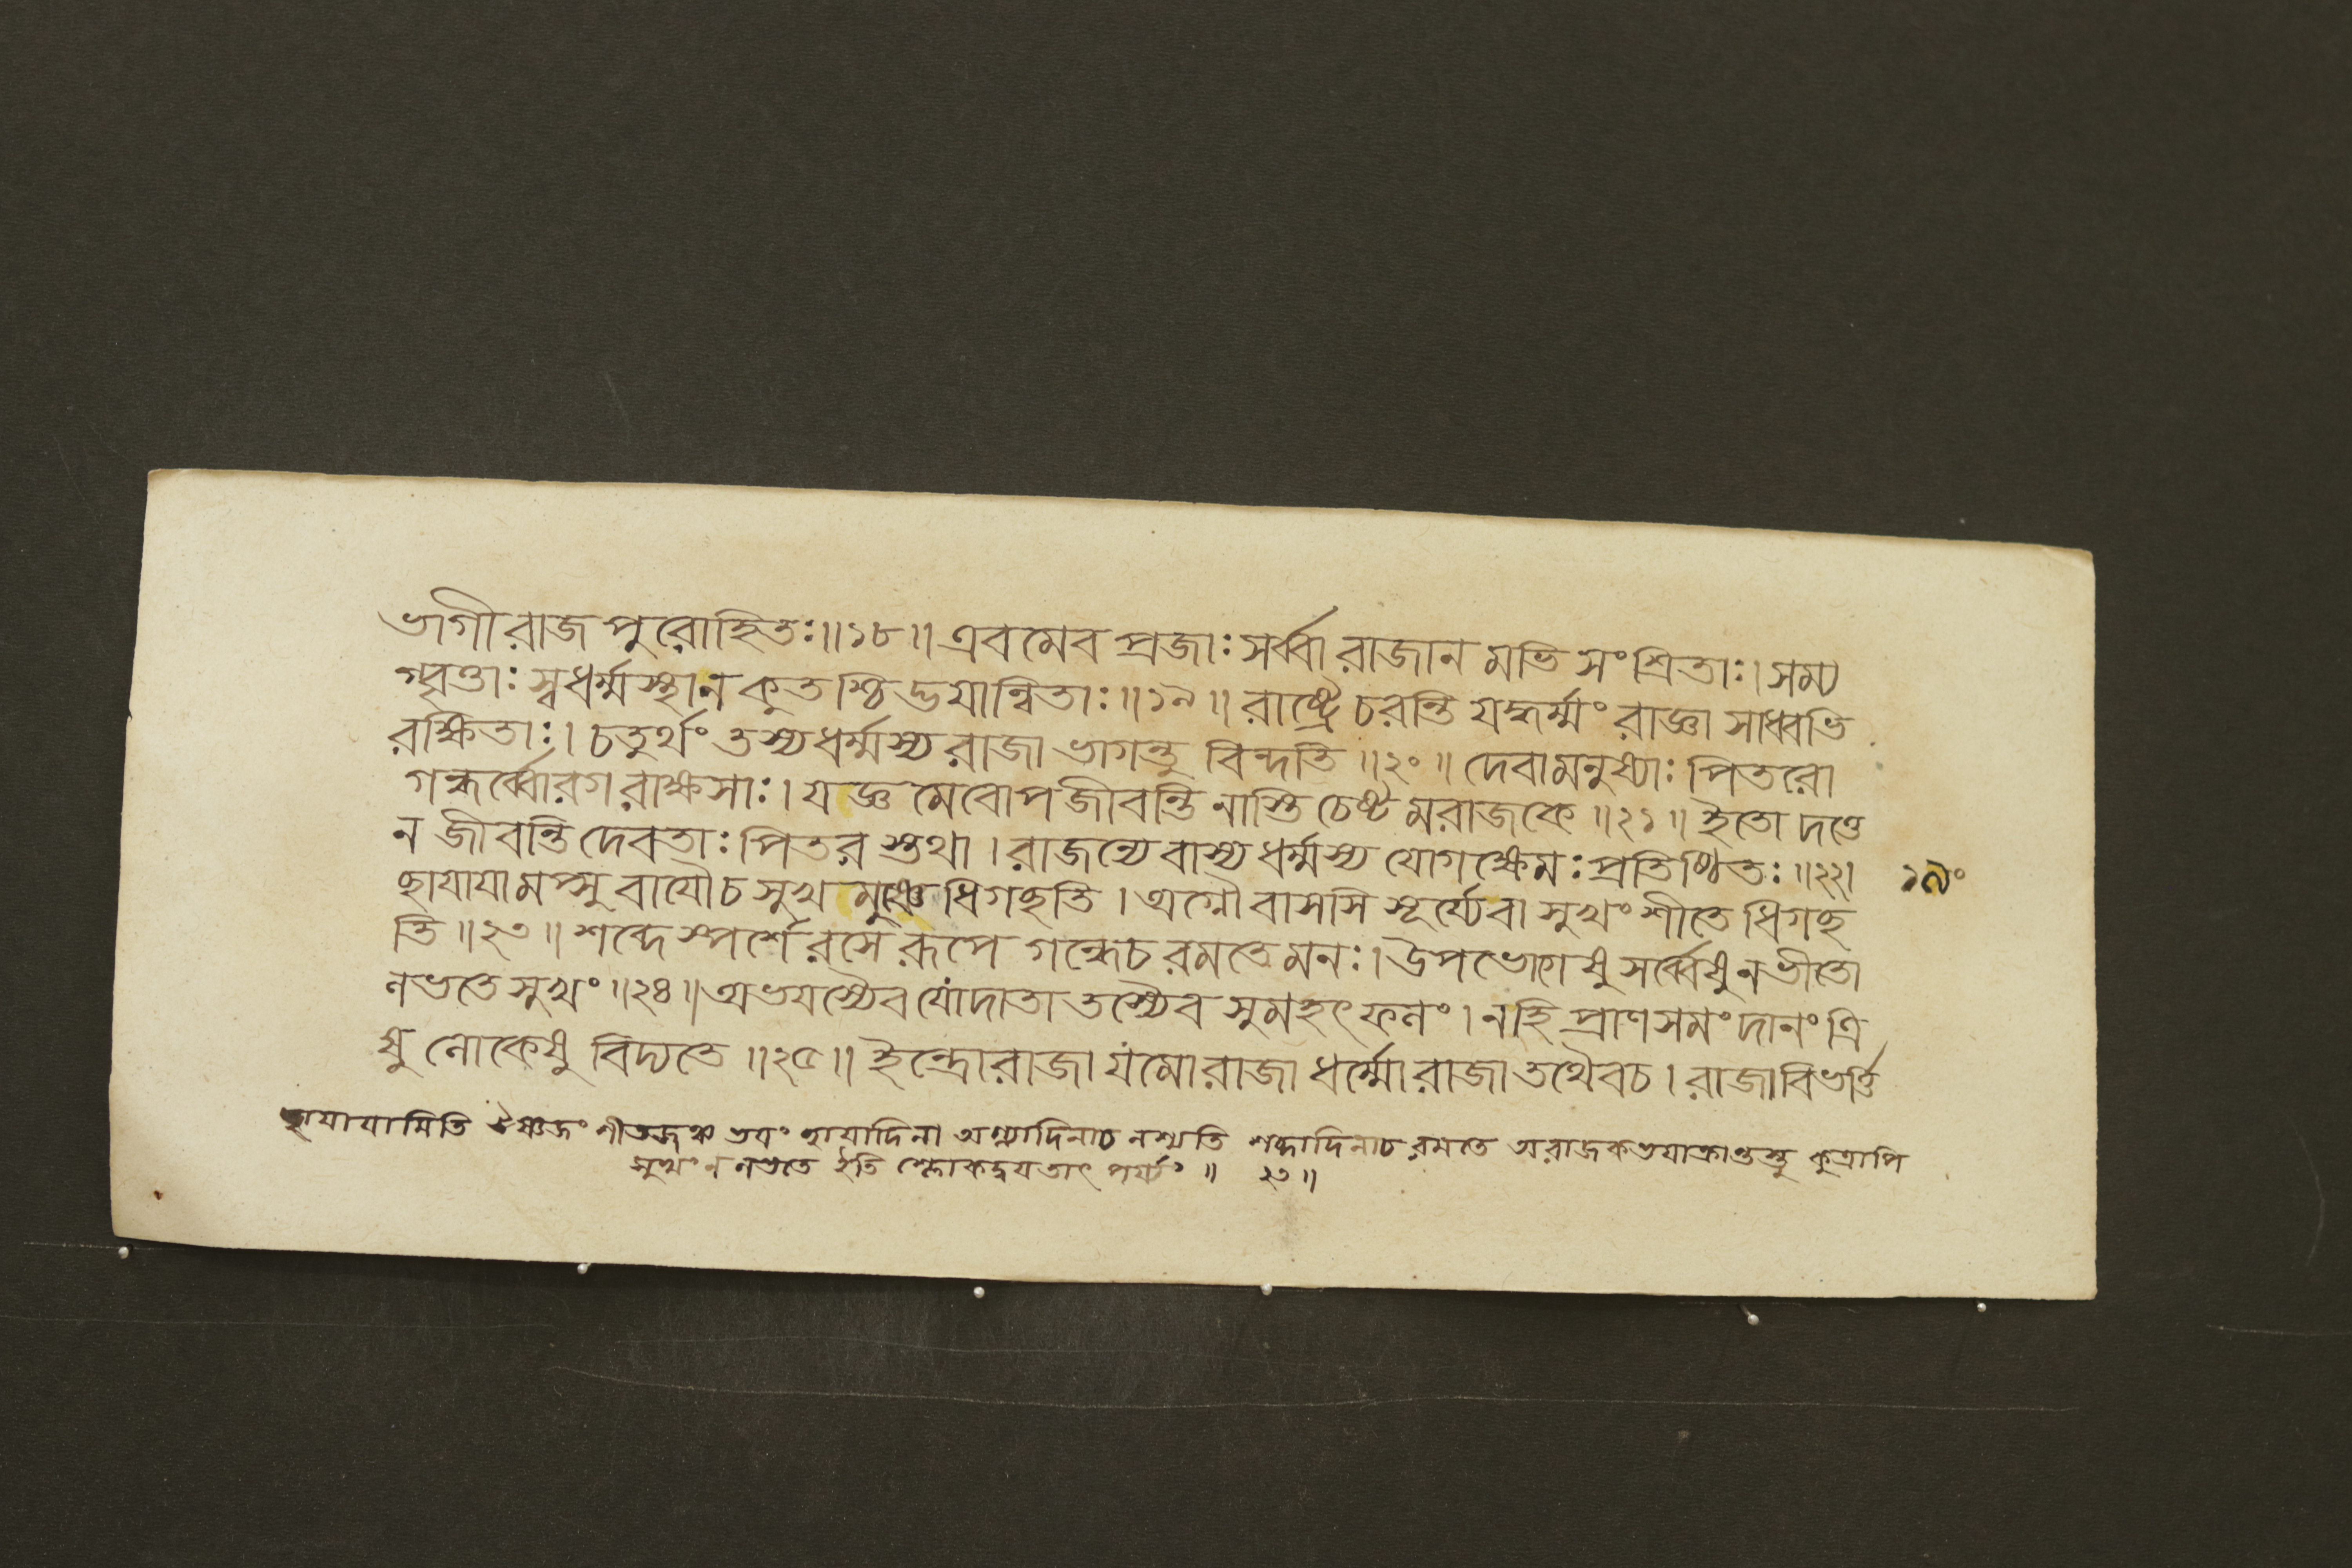 ভাগী রাজ পুরোহিতঃ॥১৮॥ এবমেব প্রজাঃ সর্ব্বা রাজান মভি সংশ্রিতাঃ। সম্য
গ্বৃত্তাঃ স্বধর্ম্মস্থা ন কুতশ্চিদ্ভয়ান্বিতাঃ॥১৯॥ রাষ্ট্রে চরন্তি যদ্ধর্ম্মং রাজ্ঞা সাধ্বভি
রক্ষিতাঃ। চতুর্থং তস্য ধর্ম্মস্য রাজা ভাগন্তু বিন্দতি॥২০॥ দেবা মনুষ্যাঃ পিতরো
গন্ধর্ব্বোরগ রাক্ষসাঃ। যজ্ঞ মেবোপ জীবন্তি নাস্তি চেষ্ট মরাজকে॥২১॥ ইতো দত্তে
ন জীবন্তি দেবতাঃ পিতর স্তথা। রাজন্যে বাস্য ধর্ম্মস্য যোগক্ষেমঃ প্রতিষ্ঠিতঃ॥২২।
ছায়ায়া মপ্সু বায়ৌ চ সুখ মুষ্ণে ধিগছতি। অগ্নৌ বাসসি সূর্য্যে বা সুখং শীতে ধিগছ
তি॥২৩॥ শব্দে স্পর্শে রসে রূপে গন্ধে চ রমতে মনঃ। উপভোগেষু সর্ব্বেষু ন ভীতো
লভতে সুখং॥২৪॥ অভয়স্যৈব যোদাতা তস্যৈব সুমহৎ ফলং। নহি প্রাণ সমং দানং ত্রি
ষু লোকেষু বিদ্যতে॥২৫॥ ইন্দ্রো রাজা যমো রাজা ধর্ম্মো রাজা তথৈব চ। রাজা বিভর্ত্তি
১৯০
ছায়ায়ামিতি ঔষ্ণজং শীতজঞ্চ ভয়ং ছায়াদিনা অগ্ন্যাদিনাচ নশ্যতি শব্দাদিনাচ রমতে অরাজক ভয়াক্রান্তস্তু কুত্রাপি
সুখং ন লভতে ইতি শ্লোকদ্বয় তাৎপর্য্যং॥ ২৩॥